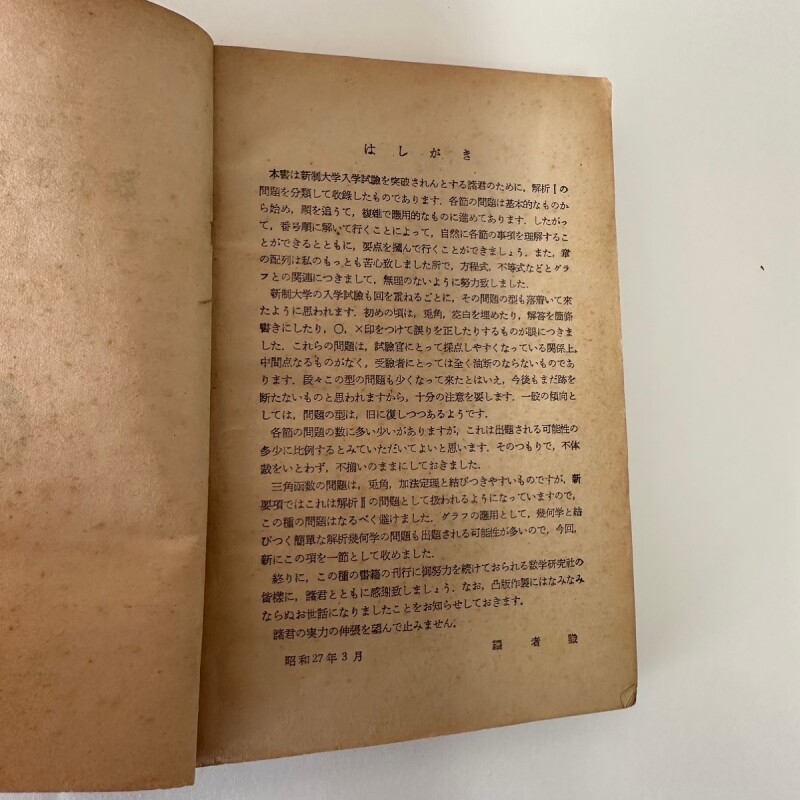 はしがき
本書は新制大学入学試験を突破されんとする諸君のために，解析Ⅰの
問題を分類して収録したものであります．各節の問題は基本的なものか
ら始め，順を追うて，複雑で應用的なものに進めてあります．したがっ
て，番号順に解いて行くことによって，自然に各節の事項を理解するこ
とができるとともに，要点を掴んで行くことができましょう．また，章
の配列は私のもっとも苦心致しました所で，方程式，不等式などとグラ
フとの関連につきまして，無理のないように努力致しました．
新制大学の入学試験も回を重ねるごとに，その問題の型も落着いて來
たように思われます．初めの頃は，兎角，空白を埋めたり，解答を箇條
書きにしたり，〇，×印をつけて誤りを正したりするものが眼につきま
した．これらの問題は，試驗官にとって採点しやすくなっている関係上，
中間点なるものがなく，受驗者にとっては全く油断のならないものであ
ります．段々この型の問題も少くなって來たとはいえ，今後もまだ跡を
断たないものと思われますから，十分の注意を要します．一般の傾向と
しては，問題の型は，旧に復しつつあるようです．
各節の問題の数に多い少いがありますが，これは出題される可能性の
多少に比例するとみていただいてよいと思います．そのつもりで，不体
裁をいとわず，不揃いのままにしておきました．
三角函数の問題は，兎角，加法定理と結びつきやすいものですが，新
要項ではこれは解析Ⅱの問題として扱われるようになっていますので，
この種の問題はなるべく避けました．グラフの應用として，幾何学と結
びつく簡單な解析幾何学の問題も出題される可能性が多いので，今回，
新にこの項を一節として收めました．
終りに，この種の書籍の刊行に御努力を続けておられる数学研究社の
皆様に，諸君とともに感謝致しましょう．なお，凸版作製にはなみなみ
ならぬお世話になりましたことをお知らせしておきます．
諸君の実力の伸張を望んで止みません．
昭和27年3月
者